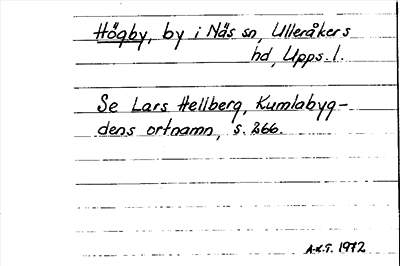 Högby, by i Näs sn, Ulleråkers
hd, Upps. l.
Se Lars Hellberg, Kumlabyg-
dens ortnamn, s. 266.
A-K.T. 1972